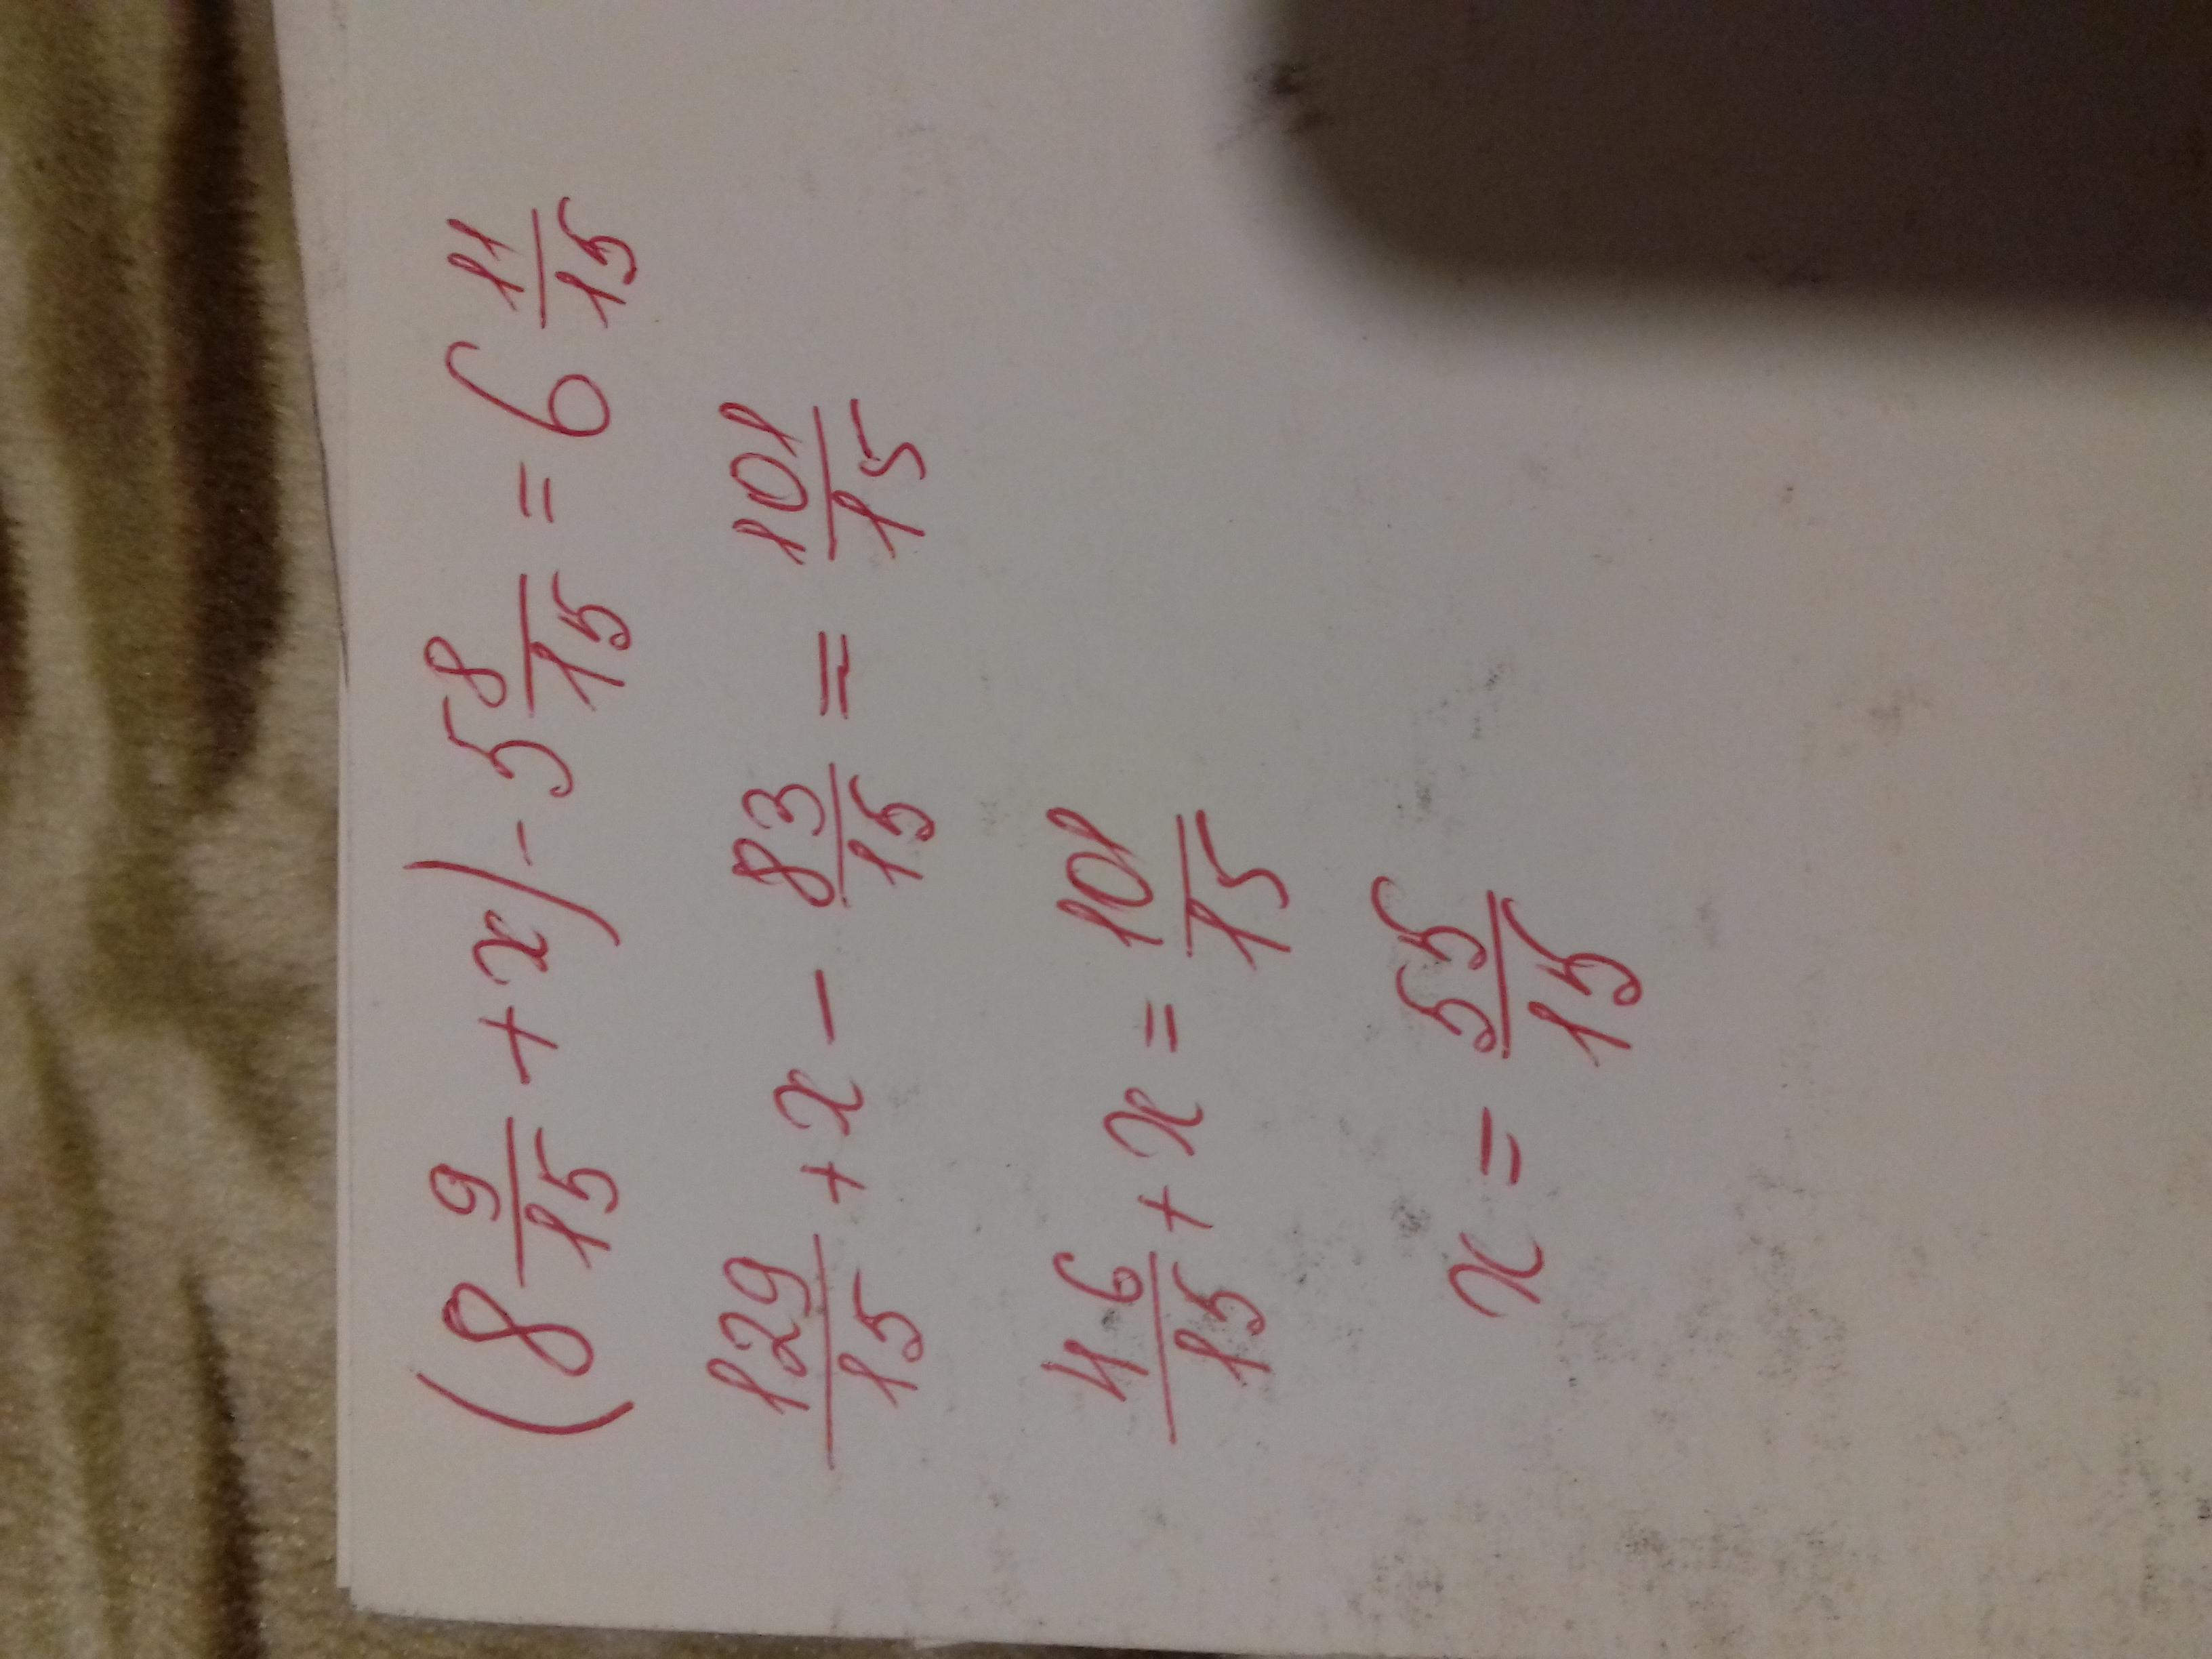 (8 9/15 + x) - 5 8/15 = 6 11/15
129/15 + x - 83/15 = 101/15
46/15 + x = 101/15
x = 55/15